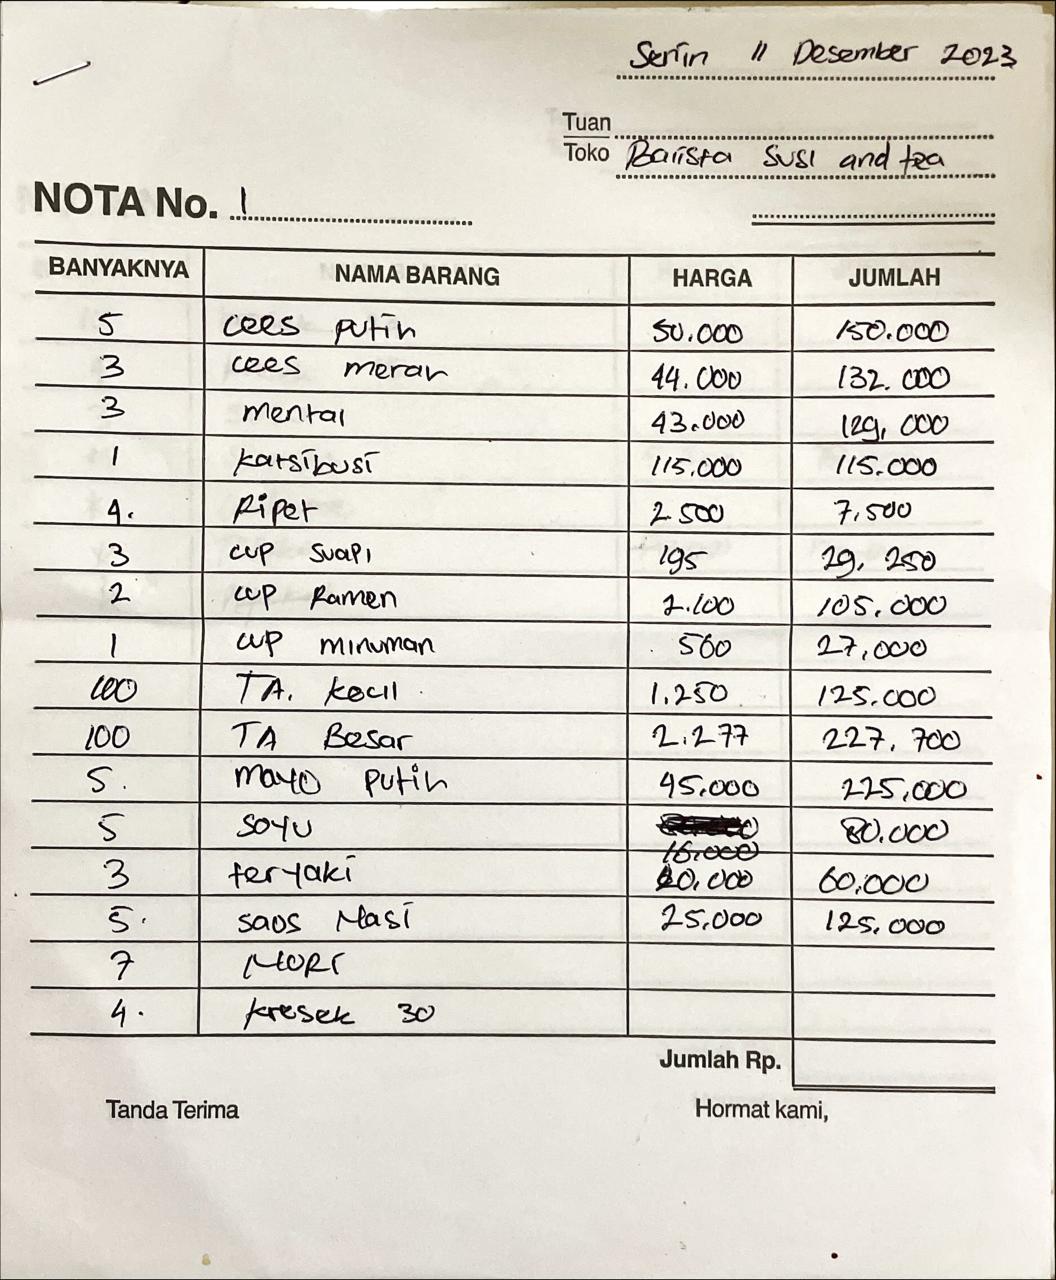 Senin 11 Desember 2023
Tuan
Toko Barista susi and tea
NOTA No. 1
BANYAKNYA NAMA BARANG HARGA JUMLAH
5 cees putih 50.000 150.000
3 cees merah 44.000 132.000
3 mentai 43.000 129,000
1 katsibusi 115.000 115.000
4. Ripet 2 500 7,500
3 cup suapi 195 29, 250
2 cup Ramen 2.100 105.000
1 cup minuman 560 27,000
100 TA. kecil 1.250 125.000
100 TA Besar 2.277 227,700
5. mayo putih 45.000 225,000
5 soyu 16.000 80.000
3 teryaki 20,000 60,000
5. saos Nasi 25,000 125.000
7 NORI
4. kresek 30
Jumlah Rp.
Tanda Terima Hormat kami,